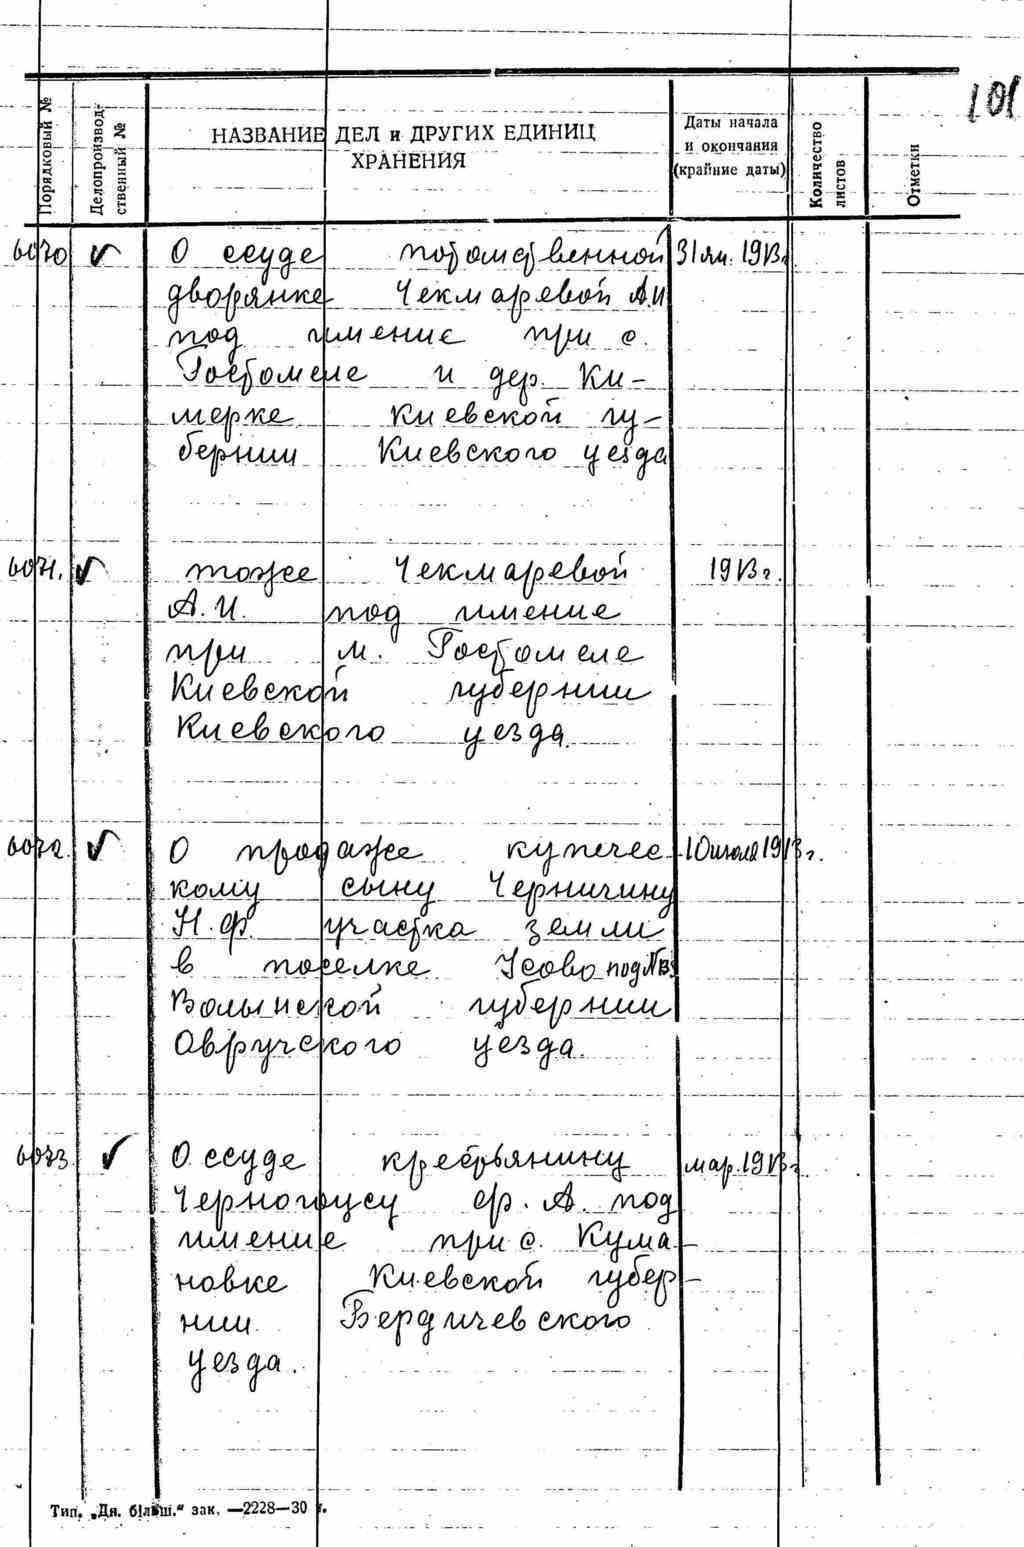 101
Порядковый №
Делопроизвод-
ственный №
НАЗВАНИЕ ДЕЛ и ДРУГИХ ЕДИНИЦ
ХРАНЕНИЯ
Даты начала
и окончания
(крайние даты)
Количество
листов
Отметки
6070 ✓ О ссуде потомственной 31 ян. 1913г
дворянке Чекмаревой А.И
под имение при с.
Гостомеле и дер. Ки-
мерке Киевской гу-
бернии Киевского уезда
6071. ✓ тоже Чекмаревой 1913 г.
А.И. под имение
при м. Гостомеле
Киевской губернии
Киевского уезда.
6072. ✓ О продаже купечес- 10 июля 1913 г.
кому сыну Черничину
Н.Ф. участка земли
в поселке Усово под
Волынской губернии
Овручского уезда.
6073. ✓ О ссуде крестьянину мар. 1913 г
Черногоусу Ф. А. под
имение при с. Кума-
новке Киевской губер-
нии Бердичевского
уезда.
Тип. „Дн. більш.“ зак. —2228—30 г.